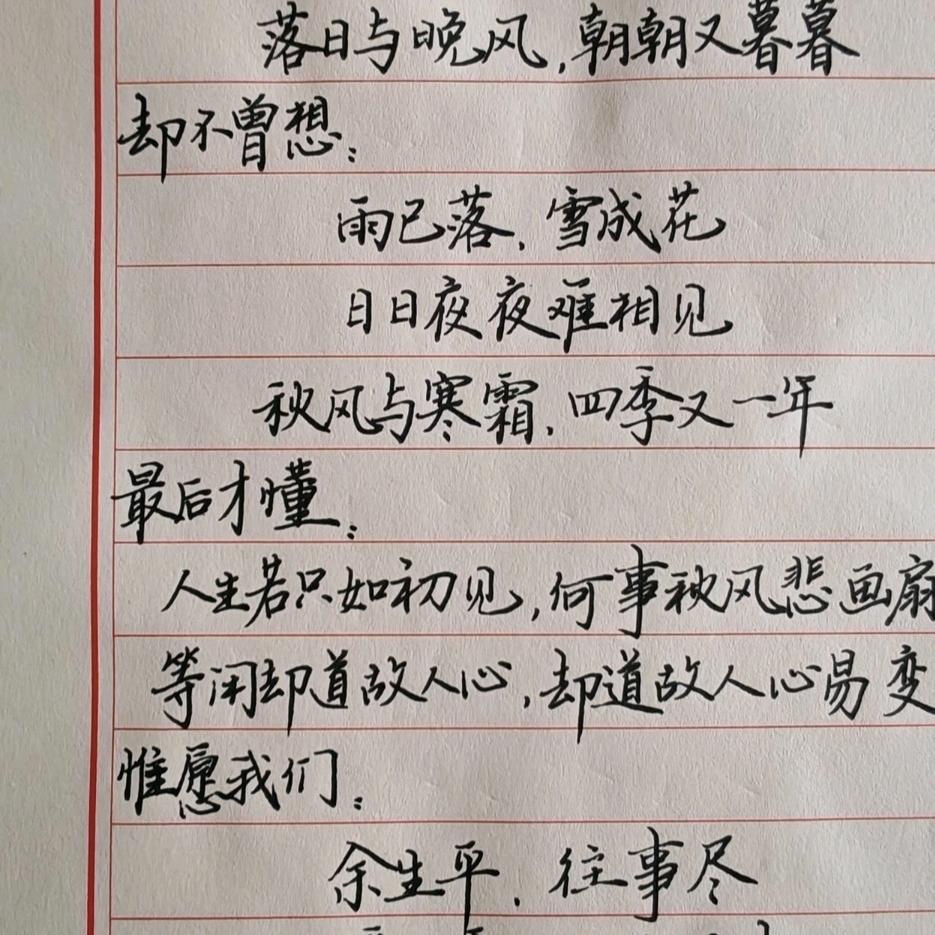 落日与晚风,朝朝又暮暮
却不曾想:
雨已落,雪成花
日日夜夜难相见
秋风与寒霜,四季又一年
最后才懂:
人生若只如初见,何事秋风悲画扇
等闲却道故人心,却道故人心易变
惟愿我们:
余生平,往事尽